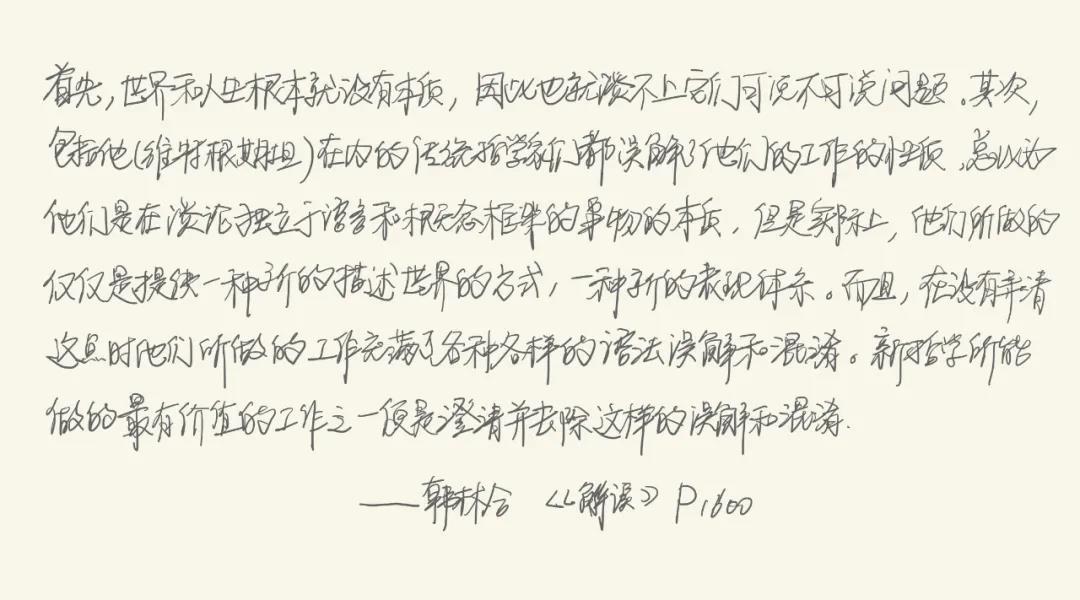 首先，世界和人生根本就没有本质，因此也就谈不上它们可说不可说问题。其次，
包括他(维特根斯坦)在内的传统哲学家们都误解了他们的工作的性质，总以为
他们是在谈论独立于语言和概念框架的事物的本质，但是实际上，他们所做的
仅仅是提供一种新的描述世界的方式，一种新的表现体系。而且，在没有弄清
这点时他们所做的工作充满了各种各样的语法误解和混淆。新哲学所能
做的最有价值的工作之一便是澄清并去除这样的误解和混淆.
——韩林合 《〈解读》 P1600